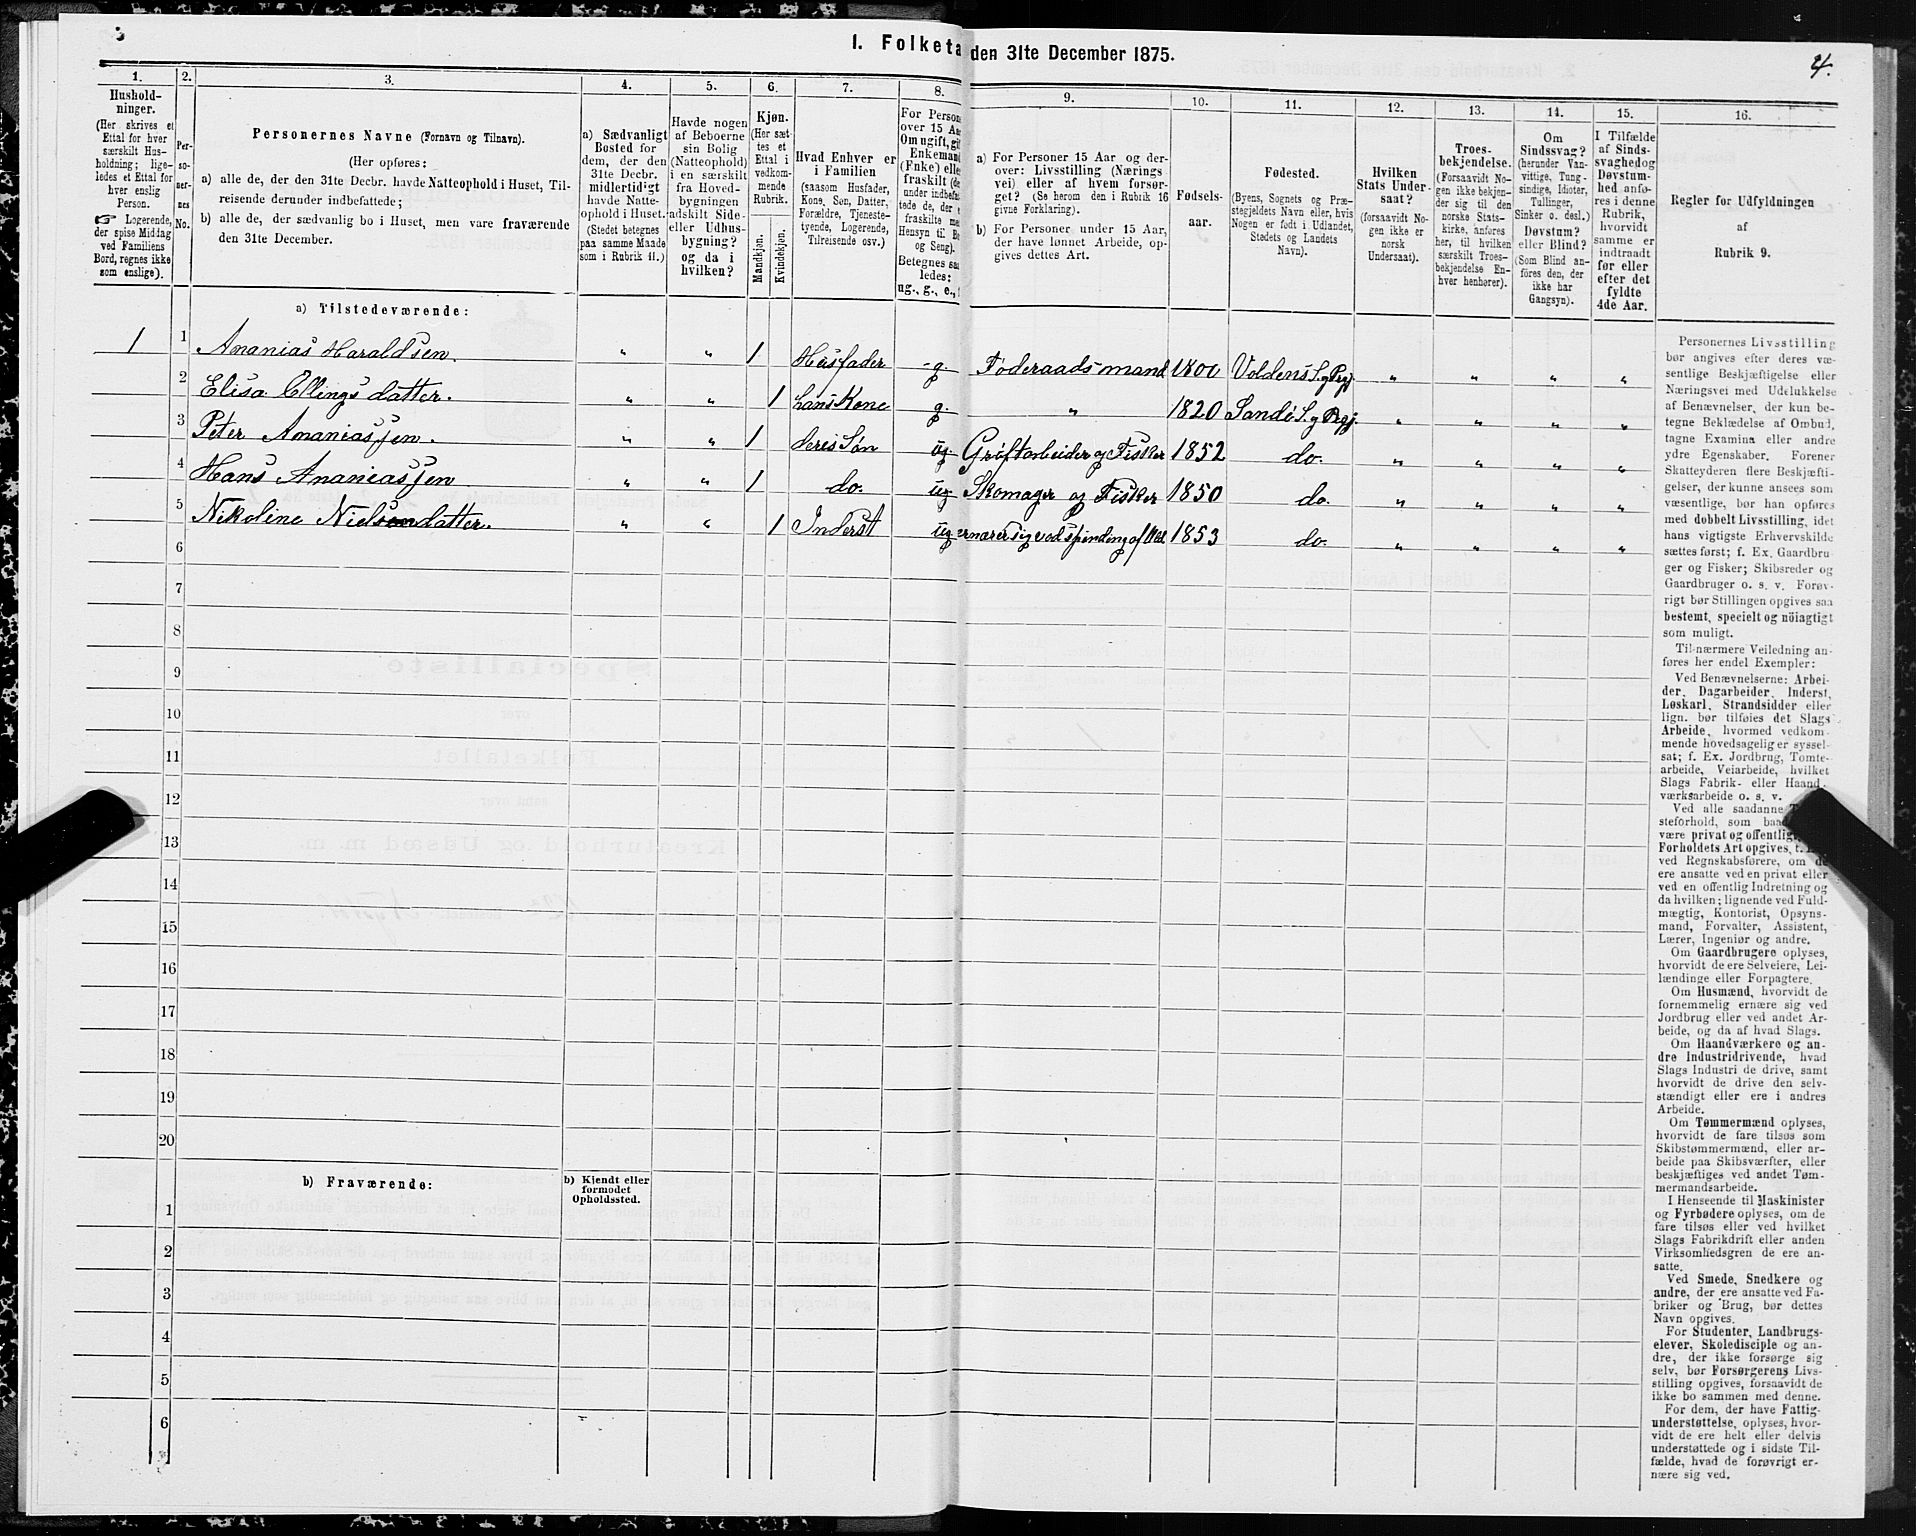 I. Folketa den 31te December 1875.
4.
1.
Hushold-
ninger.
(Her skrives et
Ettal for hver
særskilt Hus-
holdning; lige-
ledes et Ettal for
hver enslig
Person.
☞ Logerende,
der spise Middag
ved Familiens
Bord, regnes ikke
som enslige).
2.
Per-
so-
ner-
nes
No.
3.
Personernes Navne (Fornavn og Tilnavn).
(Her opføres:
a) alle de, der den 31te Decbr. havde Natteophold i Huset, Til-
reisende derunder indbefattede;
b) alle de, der sædvanlig bo i Huset, men vare fraværende
den 31te December.
4.
a) Sædvanligt
Bosted for
dem, der den
31te Decbr.
midlertidigt
havde Natte-
ophold i Huset.
(Stedet betegnes
paa samme Maade
som i Rubrik 11.)
5.
Havde nogen
af Beboerne
sin Bolig
(Natteophold)
i en særskilt
fra Hoved-
bygningen
adskilt Side-
eller Udhus-
bygning?
og da i
hvilken?
6.
Kjøn.
(Her sæt-
tes et
Ettal i
vedkom-
mende
Rubrik.
Mandkjøn.
Kvindekjøn.
7.
Hvad Enhver er
i Familien
(saasom Husfader,
Kone, Søn, Datter,
Forældre, Tjeneste-
tyende, Logerende,
Tilreisende osv.)
8.
For Person
over 15 Aa
Om ugift, gif
Enkemand
(Enke) elle
fraskilt (de
under indbefat
tede de, der e
fraskilte me
Hensyn til Bo
og Seng).
Betegnes saa
ledes:
ug., g., e., f
9.
a) For Personer 15 Aar og der-
over: Livsstilling (Nærings
vei) eller af hvem forsør-
get? (Se herom den i Rubrik 16
givne Forklaring).
b) For Personer under 15 Aar,
der have lønnet Arbeide, op-
gives dettes Art.
10.
Fødsels-
aar.
11.
Fødested.
(Byens, Sognets og Præ-
stegjeldets Navn eller, hvis
Nogen er født i Udlandet,
Stedets og Landets
Navn).
12.
Hvilken
Stats Under-
saat?
(forsaavidt No-
gen ikke er
norsk
Undersaat).
13.
Troes-
bekjendelse.
(Forsaavidt No-
gen ikke bekjen-
der sig til den
norske Stats-
kirke, anføres
her, til hvilken
særskilt Troes-
bekjendelse En-
hver henhører).
14.
Om
Sindssvag?
(herunder Van-
vittige, Tung-
sindige, Idioter,
Tullinger,
Sinker o. desl.)
Døvstum?
eller Blind?
(Som Blind an-
føres den, der
ikke har
Gangsyn).
15.
I Tilfælde
af Sinds-
svaghed og
Døvstum-
hed anfø-
res i denne
Rubrik,
hvorvidt
samme er
indtraadt
før eller
efter det
fyldte
4de Aar.
16.
Regler for Udfyldningen
af
Rubrik 9.
a) Tilstedeværende:
1 1 Ananias Haraldsen. „ „ 1 Husfader g. Føderaadsmand 1800 Voldens S. og Prgj. „ „ „ „
2 Elisa Ellingsdatter. „ „ 1 hans Kone g. „ 1820 Sandø S. og Prgj. „ „ „ „
3 Peter Ananiassen. „ „ 1 deres Søn ug. Grøftarbeider og Fisker 1852 do. „ „ „ „
4 Hans Ananiassen „ „ 1 do. ug. Skomager og Fisker 1850 do. „ „ „ „
5 Nikoline Nielsendatter. „ „ 1 Inderst ug. ernærer sig ved spinding af Uld 1853 do. „ „ „ „
6
7
8
9
10
11
12
13
14
15
16
17
18
19
20
b) Fraværende:
b) Kjendt eller
formodet
Opholdssted.
1
2
3
4
5
6
Personernes Livsstilling
bør angives efter deres væ-
sentlige Beskjæftigelse eller
Næringsvei med Udelukkelse
af Benævnelser, der kun be-
tegne Beklædelse af Ombud,
tagne Examina eller andre
ydre Egenskaber. Forener
Skatteyderen flere Beskjæfti-
gelser, der kunne ansees som
væsentlige, bør han opføres
med dobbelt Livsstilling, idet
hans vigtigste Erhvervskilde
sættes først; f. Ex. Gaardbru-
ger og Fisker; Skibsreder og
Gaardbruger o. s. v. Forøv-
rigt bør Stillingen opgives saa
bestemt, specielt og nöiagtigt
som muligt.
Til nærmere Veiledning an-
føres her endel Exempler:
Ved Benævnelserne: Arbei-
der, Dagarbeider, Inderst,
Løskarl, Strandsidder eller
lign. bør tilføies det Slags
Arbeide, hvormed vedkom-
mende hovedsagelig er syssel-
sat; f. Ex. Jordbrug, Tomte-
arbeide, Veiarbeide, hvilket
Slags Fabrik- eller Haand-
værksarbeide o. s. v.
Ved alle saadanne
steforhold, som baa
være privat og offentlig
Forholdets Art opgives, t.
ved Regnskabsførere, om de
ere ansatte ved en privat eller
ved en offentlig Indretning og
da hvilken; lignende ved Fuld-
mægtig, Kontorist, Opsyns-
mand, Forvalter, Assistent,
Lærer, Ingeniør og andre.
Om Gaardbrugere oplyses,
hvorvidt de ere Selveiere, Lei-
lændinge eller Forpagtere.
Om Husmænd, hvorvidt de
fornemmelig ernære sig ved
Jordbrug eller ved andet Ar-
beide, og da af hvad Slags.
Om Haandværkere og an-
dre Industridrivende, hvad
Slags Industri de drive, samt
hvorvidt de drive den selv-
stændigt eller ere i andres
Arbeide.
Om Tømmermænd oplyses,
hvorvidt de fare tilsøs som
Skibstømmermænd, eller ar-
beide paa Skibsværfter, eller
beskjæftiges ved andet Tøm-
mermandsarbeide.
I Henseende til Maskinister
og Fyrbødere oplyses, om de
fare tilsøs eller ved hvilket
Slags Fabrikdrift eller anden
Virksomhedsgren de ere an-
satte.
Ved Smede, Snedkere og
andre, der ere ansatte ved Fa-
briker og Brug, bør dettes
Navn opgives.
For Studenter, Landbrugs-
elever, Skoledisciple og an-
dre, der ikke forsørge sig
selv, bør Forsørgerens Livs-
stilling opgives, forsaavidt de
ikke bo sammen med denne.
For dem, der have Fattig-
understøttelse, oplyses, hvor-
vidt de ere helt eller delvis
understøttede og i sidste Til-
fælde, hvad de forøvrigt er-
nære sig ved.